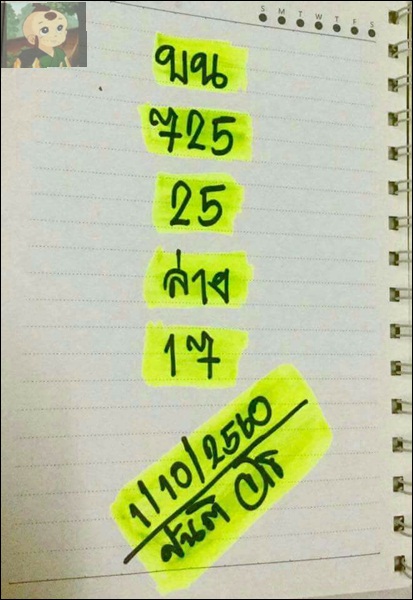 S M T W T F S
บน
725
25
ล่าง
17
1/10/2560